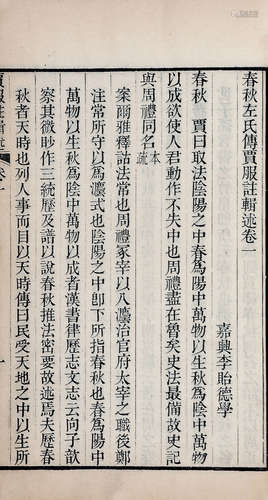 春秋左氏傳賈服註輯述卷一
嘉興李貽德學
春秋 賈曰取法陰陽之中春為陽中萬物以生秋為陰中萬物
以成欲使人君動作不失中也周禮盡在魯矣史法最備故史記
與周禮同名本疏
案爾雅釋詁法常也周禮冢宰以八灋治官府太宰之職後鄭
注常所守以為灋式也陰陽之中卽下所指春秋也春為陽中
萬物以生秋為陰中萬物以成者漢書律歷志文志云向子歆
察其微眇作三統歷及譜以說春秋推法密要故述焉夫歷春
秋者天時也列人事而目以天時傳曰民受天地之中以生所